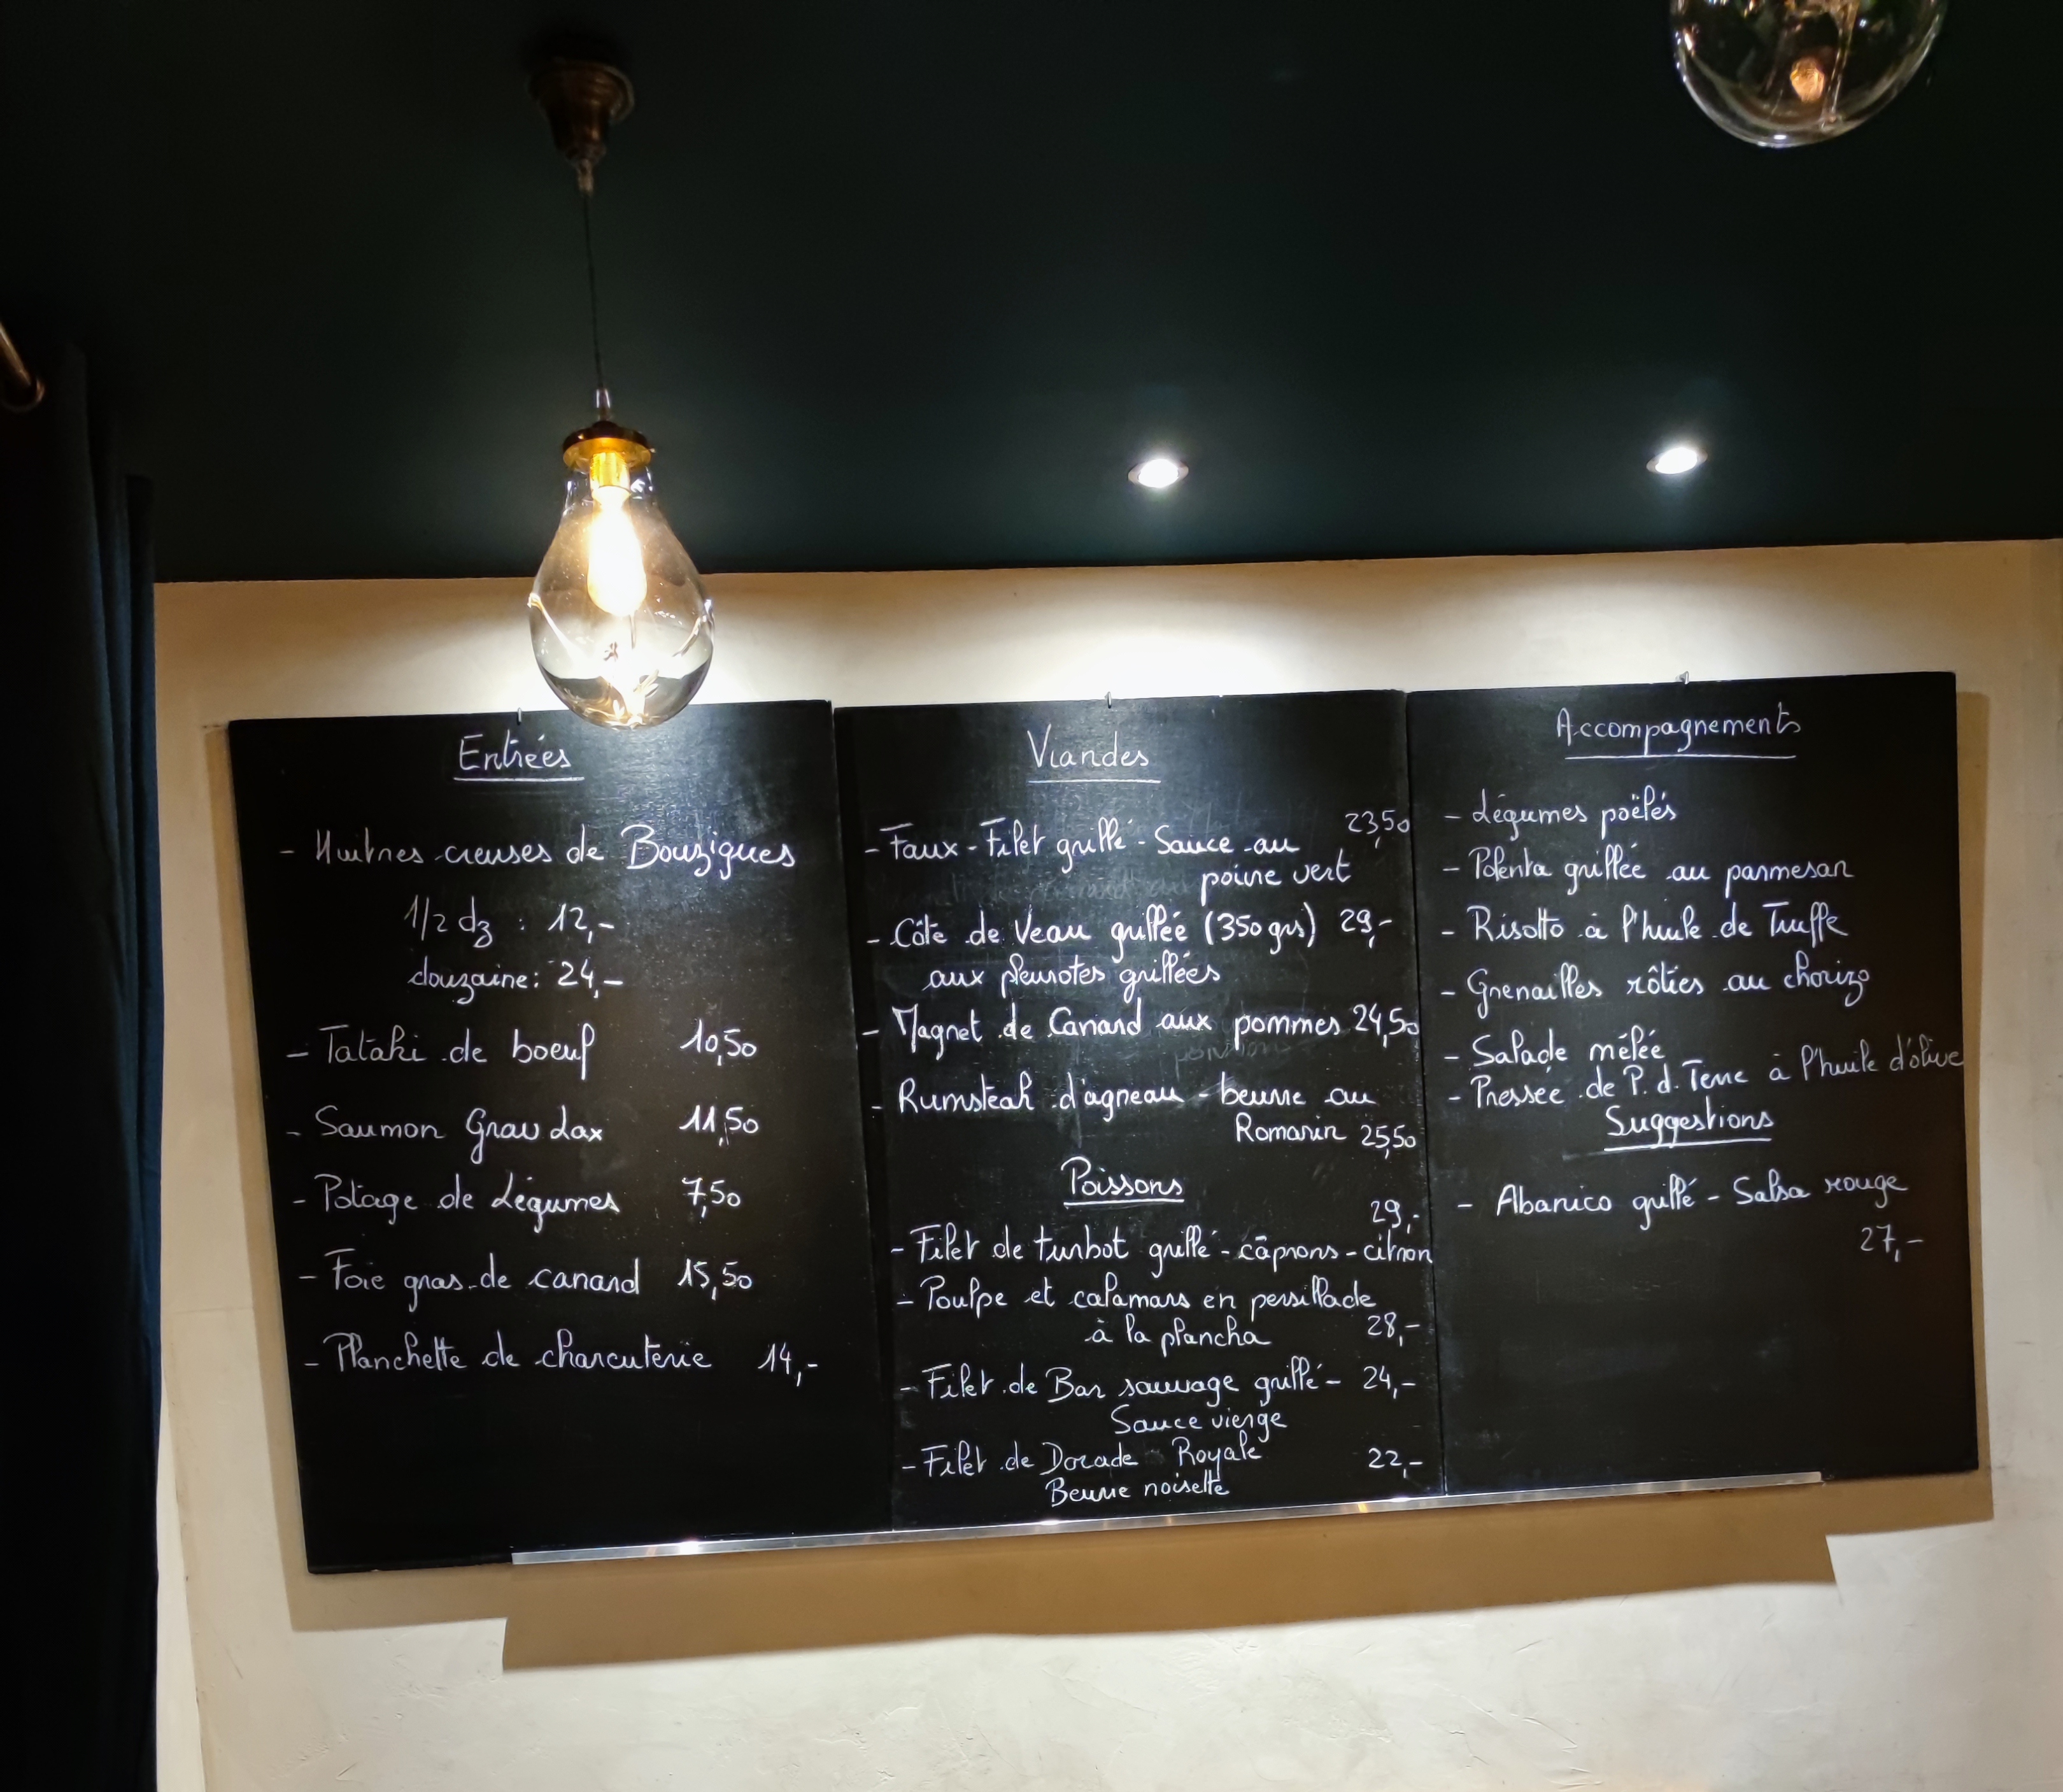 Entrées
- Huitres creuses de Bouzigues
1/2 dz : 12,-
douzaine : 24,-
- Tataki de boeuf 10,50
- Saumon Grav Lax 11,50
- Potage de Légumes 7,50
- Foie gras de canard 15,50
- Planchette de charcuterie 14,-
Viandes
- Faux-Filet grillé - Sauce au 23,50
poivre vert
- Côte de Veau grillée (350 grs) 29,-
aux pleurotes grillées
- Magret de Canard aux pommes 24,50
- Rumsteak d'agneau - beurre au
Romarin 25,50
Poissons
29,-
- Filet de turbot grillé - câprons - citron
- Poulpe et calamars en persillade
à la plancha 28,-
- Filet de Bar sauvage grillé - 24,-
Sauce vierge
- Filet de Dorade Royale 22,-
Beurre noisette
Accompagnements
- Légumes poëlés
- Polenta grillée au parmesan
- Risotto à l'huile de Truffe
- Grenailles rôties au chorizo
- Salade mêlée
- Pressée de P.d.Terre à l'huile d'olive
Suggestions
- Abanico grillé - Salsa rouge
27,-